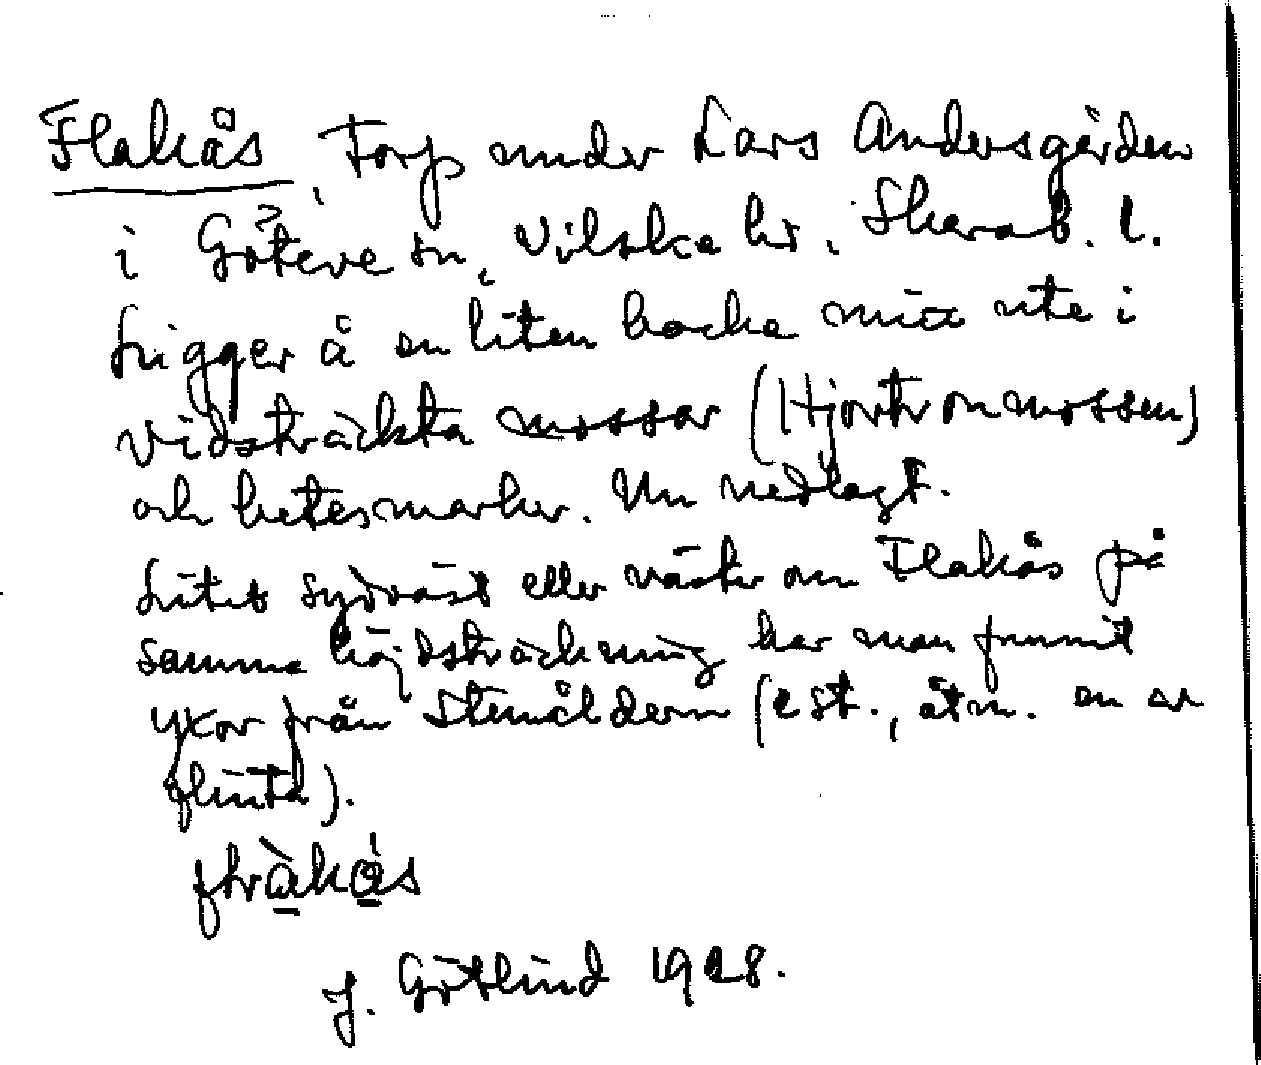 Flakås, Torp under Lars Andersgården
i Göteve sn, Vilske hd, Skarab. l.
Ligger å en liten backe mitt ute i
vidsträckta mossar (Hjortronmossen)
och betesmarker. Nu nedlagt.
Litet sydväst eller väster om Flakås på
samma höjdsträckning har man funnit
yxor från stenåldern (e st., åtm. en av
flinta).
J. Götlind 1928.